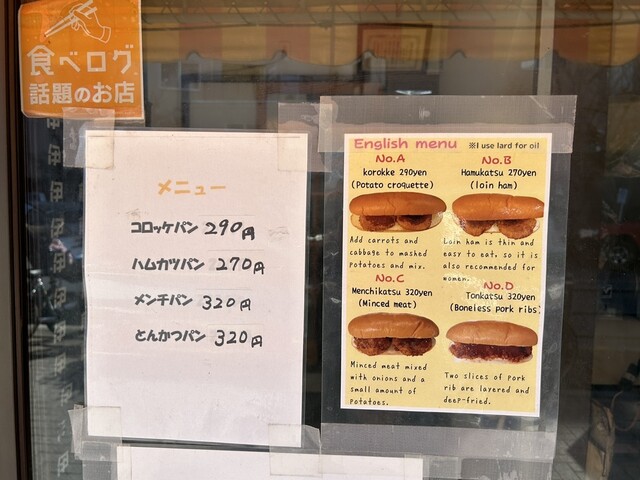 食べログ
話題のお店
メニュー
コロッケパン 290円
ハムカツパン 270円
メンチパン 320円
とんかつパン 320円
English menu ※I use lard for oil
No.A
korokke 290yen
(Potato croquette)
Add carrots and
cabbage to mashed
potatoes and mix.
No.B
Hamukatsu 270yen
(loin ham)
Loin ham is thin and
easy to eat, so it is
also recommended for
women.
No.C
Menchikatsu 320yen
(Minced meat)
Minced meat mixed
with onions and a
small amount of
potatoes.
No.D
Tonkatsu 320yen
(Boneless pork ribs)
Two slices of pork
rib are layered and
deep-fried.